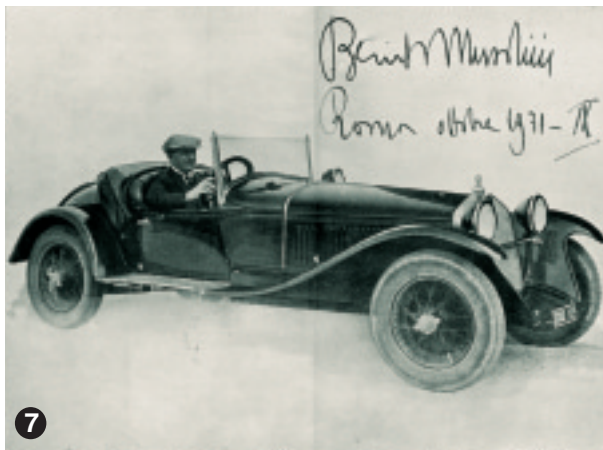 Benito Mussolini
Roma ottobre 1931 - IX
7